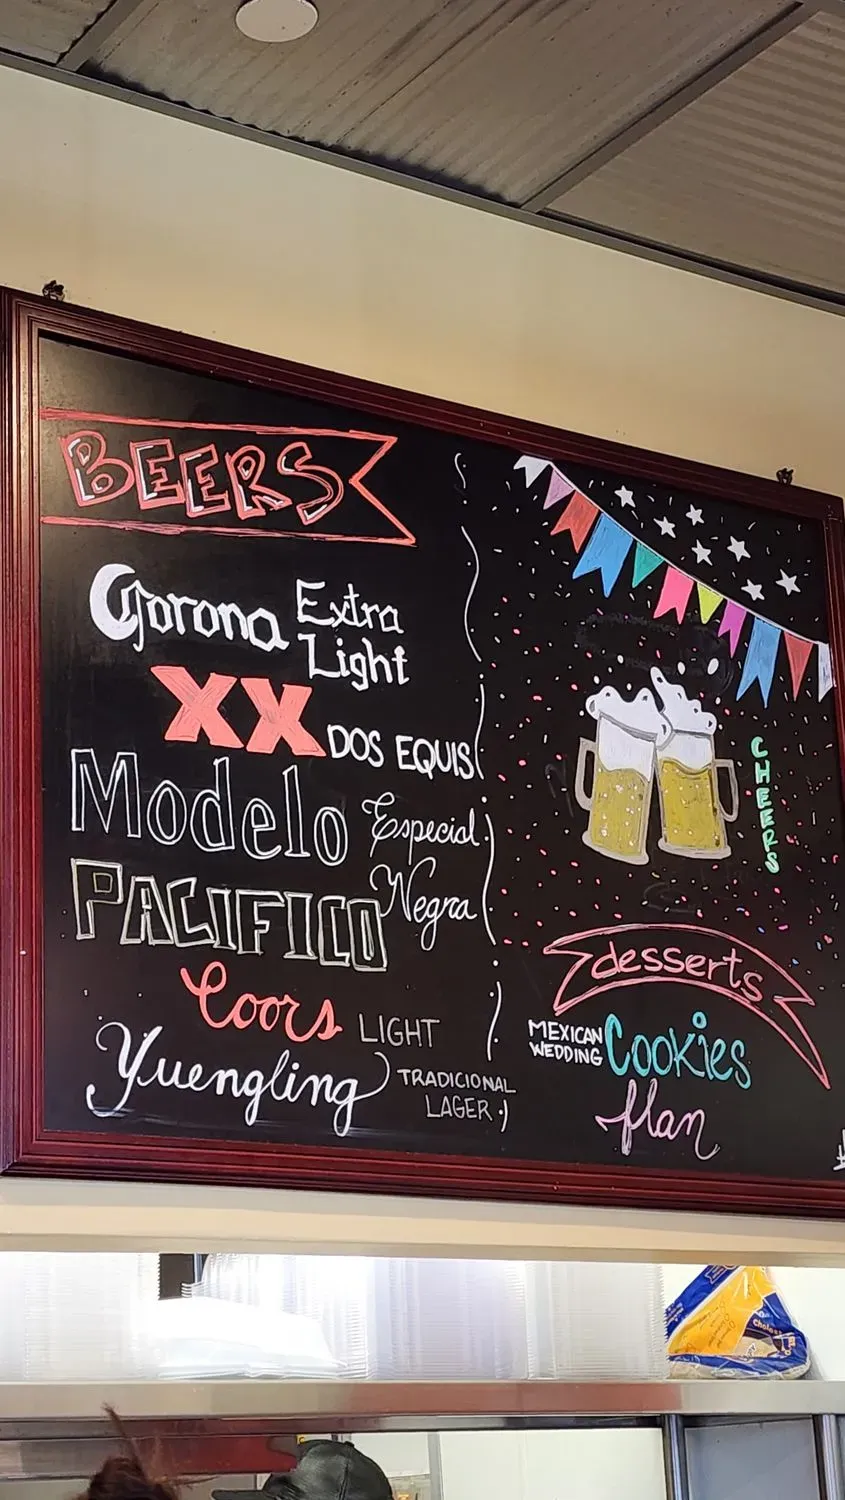 BEERS
Corona Extra
Light
XX DOS EQUIS
Modelo Especial
Negra
PACIFICO
Coors LIGHT
Yuengling TRADICIONAL
LAGER
CHEERS
desserts
MEXICAN
WEDDING
Cookies
flan